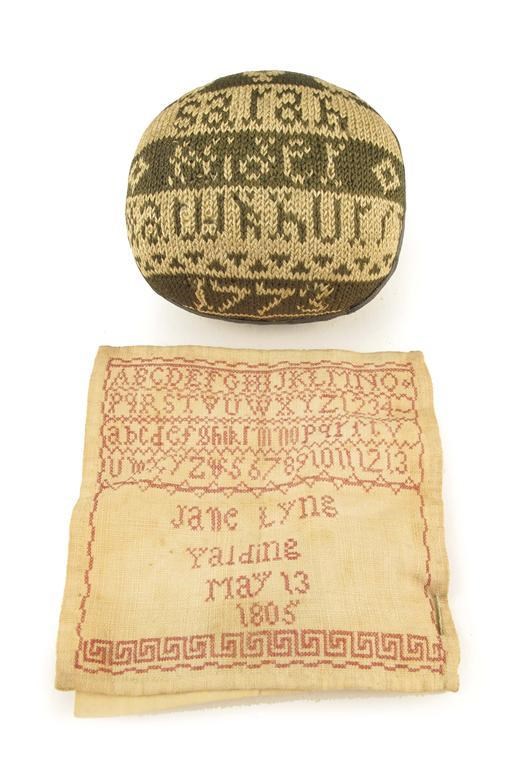 sarah
1773
ABCDEFGHIJKLMNO
PQRSTVUWXYZ1234
abcdefghiklmnopqrstv
uwxyz4567891011213
Jane Lyng
Yalding
May 13
1805